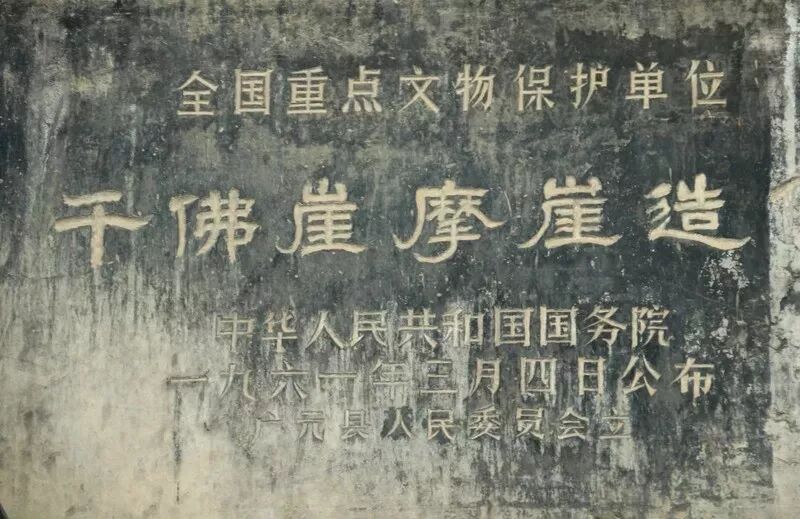 全国重点文物保护单位
千佛崖摩崖造
中华人民共和国国务院
一九六一年三月四日公布
广元县人民委员会立